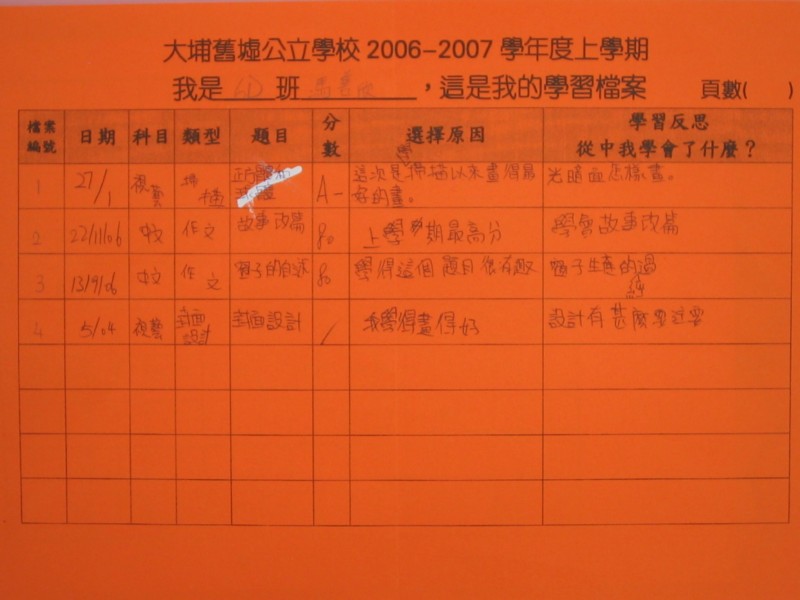 大埔舊墟公立學校 2006-2007 學年度上學期
我是 班 ，這是我的學習檔案 頁數( )
檔案編號 日期 科目 類型 題目 分數 選擇原因 學習反思 從中我學會了什麼？
1 27/1 視藝 A- 這次是 以來畫得最好的畫。 光暗面怎樣畫。
2 22/11/06 中文 作文 故事改篇 80 上學期最高分 學會故事改篇
3 13/9/06 中文 作文 的自述 80 學得這個題目很有趣 子生產的過
4 5/04 視藝 封面設計 封面設計 / 我學得畫得好 設計有甚麼要注要